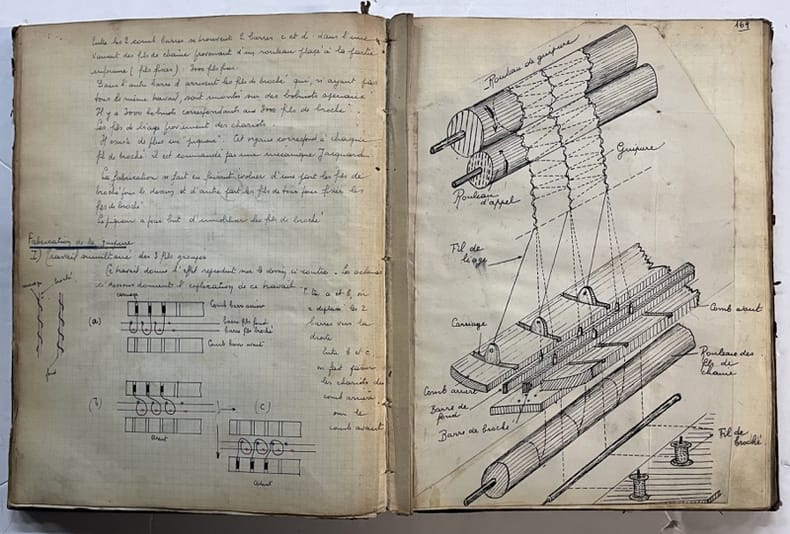 Entre les 2 comb barres se trouvent 2 barres c et d. dans l'une
viennent des fils de chaîne provenant d'un rouleau placé à la partie
inférieure (fils fixes): 3000 fils fixes.
Dans l'autre barre d arrivent les fils de broché qui, n'ayant pas
tous le même travail, sont montés sur des bobinots
Il y a 3000 bobinots correspondants aux 3000 fils de broché.
Les fils de liage proviennent des chariots
Il existe de plus un piqueur. Cet organe correspond à chaque
fil de broché il est commandé par une mécanique Jacquard
La fabrication se fait en faisant évoluer d'une part les fils de
broché pour le dessin et d'autre part les fils de pour fixer les
fils de broché
Le piqueur a pour but d'immobiliser les fils de broché
Fabrication de la guipure
I) Travail simultané des 3 fils groupés
Ce travail donne l'effet représenté sur le dessin ci contre. Les schémas
ci dessous donnent l'explication de ce travail
broché
carriage
Comb barre arrière
(a)
barre fils fond
barre fils broché
Comb barre avant
Entre a et b, on
a déplacé les 2
barres vers la
droite
Entre b et c
on fait passer
les chariots du
comb arrière
sur le
comb avant
(b)
avant
(c)
avant
169
Rouleau de guipure
Guipure
Rouleau
d'appel
Fil de
liage
Carriage
Comb avant
Rouleau des
fils de
chaine
Comb arrière
Barre de
fond
Barre de broché
Fil de
broché